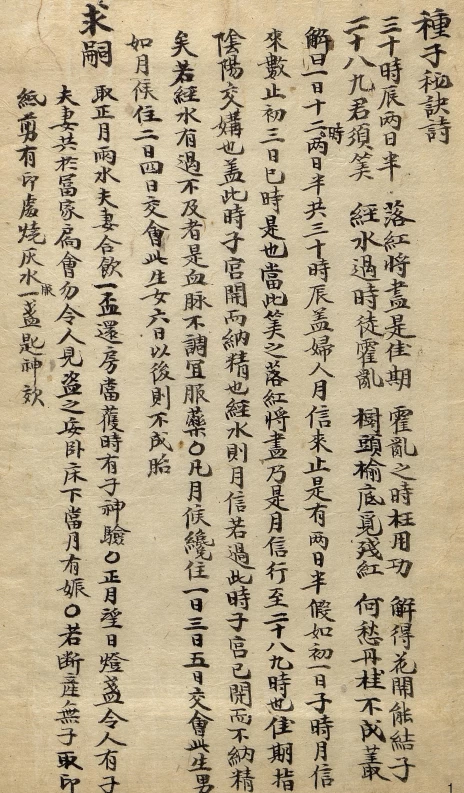 種子秘訣詩
三十時辰兩日半　落紅將盡是佳期　霍亂之時枉用功　解得花開能結子
二十八九君須筭　経水過時徒霍亂　樹頭楡底覓殘紅　何愁丹桂不成叢
解曰一日十二時兩日半共三十時辰盖婦人月信來止是有兩日半假如初一日子時月信
來數止初三日巳時是也當此筭之落紅將盡乃是月信行至二十八九時也佳期指
陰陽交媾也盖此時子宮開而納精也経水則月信若過此時子宮已閉而不納精
矣若経水有過不及者是血脉不調宜服藥〇凡月候纔住一日三日五日交會此生男
如月候住二日四日交會此生女六日以後則不成胎
求嗣　取正月雨水夫妻合飮一盃還房當獲時有子神驗〇正月望日燈盞令人有子
夫妻共於富家局會勿令人見盜之安卧床下當月有娠〇若断産無子取印
紙剪有印處燒灰水服一盞匙神效
1